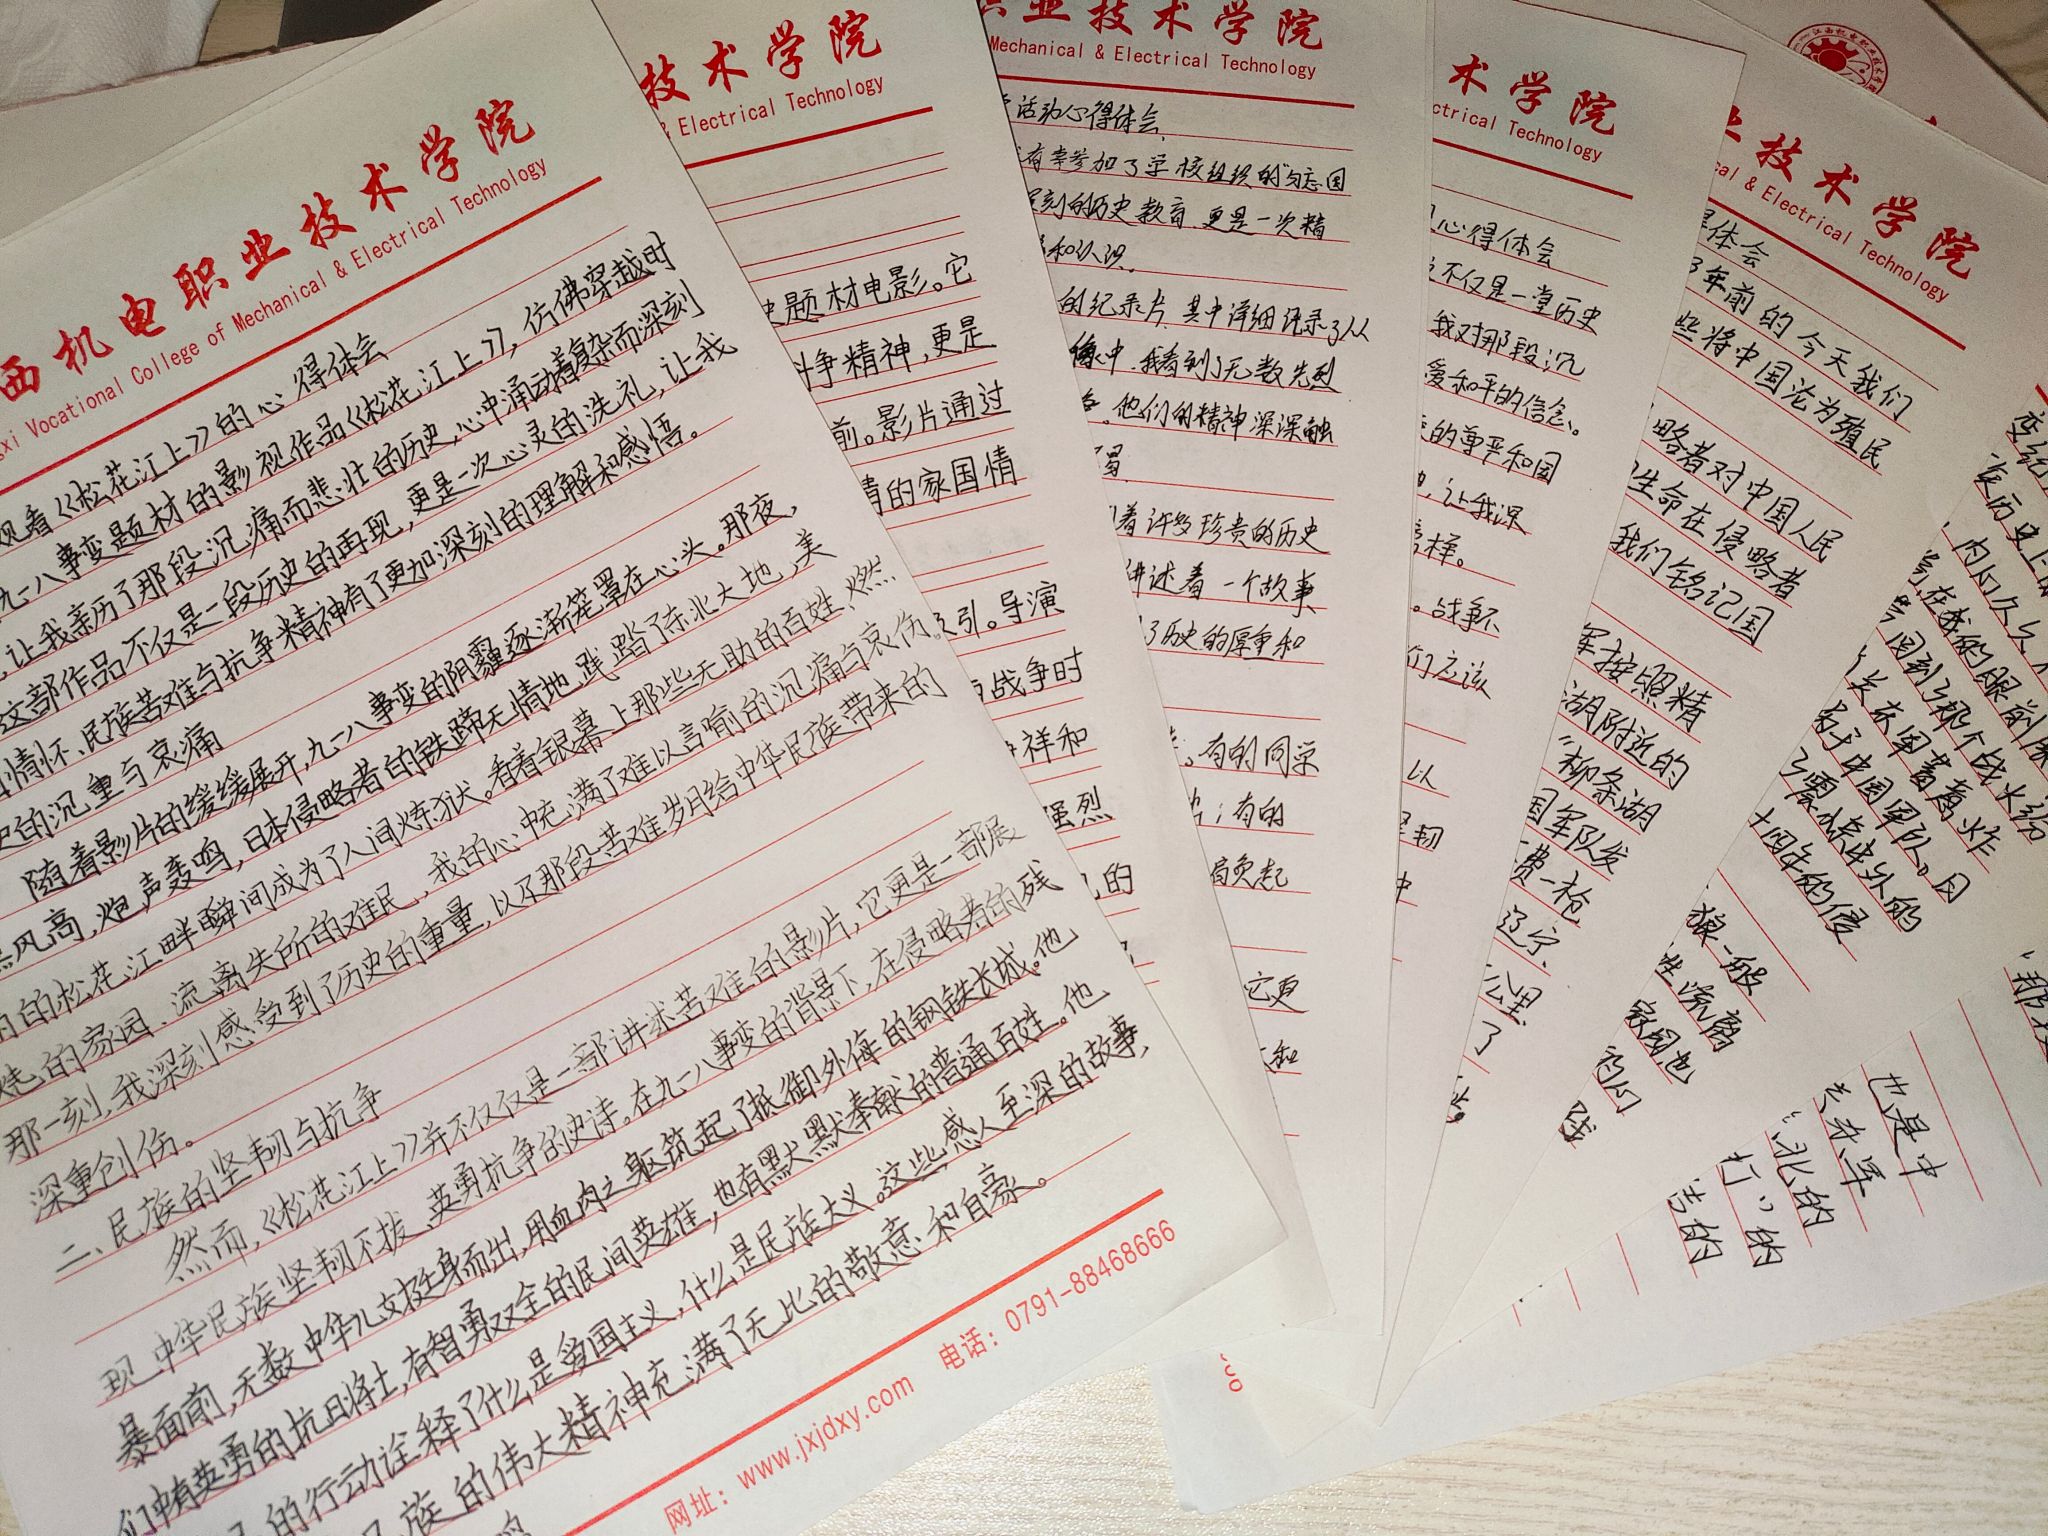 西机电职业技术学院
gxi Vocational College of Mechanical & Electrical Technology
观看《松花江上》的心得体会
九一八事变题材的影视作品《松花江上》,仿佛穿越时
,让我亲历了那段沉痛而悲壮的历史,心中涌动着复杂而深刻
这部作品不仅是一段历史的再现,更是一次心灵的洗礼,让我
情怀、民族苦难与抗争精神有了更加深刻的理解和感悟。
史的沉重与哀痛
随着影片的缓缓展开,九一八事变的阴霾逐渐笼罩在心头。那夜,
黑风高,炮声轰鸣,日本侵略者的铁蹄无情地践踏了东北大地,美
的松花江畔瞬间成为了人间炼狱。看着银幕上那些无助的百姓、燃
烧的家园、流离失所的难民,我的心中充满了难以言喻的沉痛与哀伤
那一刻,我深刻感受到了历史的重量,以及那段苦难岁月给中华民族带来的
深重创伤。
二、民族的坚韧与抗争
然而,《松花江上》并不仅仅是一部讲述苦难的影片,它更是一部展
现中华民族坚韧不拔、英勇抗争的史诗。在九一八事变的背景下,在侵略者的残
暴面前,无数中华儿女挺身而出,用血肉之躯筑起了抵御外侮的钢铁长城。他
们中有英勇的抗日将士,有智勇双全的民间英雄,也有默默奉献的普通百姓。他
的行动诠释了什么是爱国主义,什么是民族大义。这些感人至深的故事,
民族的伟大精神充满了无比的敬意和自豪。
网址：www.jxjdxy.com 电话：0791-88468666
技术学院
& Electrical Technology
史题材电影。它
斗争精神,更是
前。影片通过
情的家国情
引。导演
战争时
祥和
强烈
的
业技术学院
Mechanical & Electrical Technology
活动心得体会
有幸参加了学校组织的"勿忘国
深刻的历史教育,更是一次精
和认识。
的纪录片,其中详细记录了从
像中,我看到了无数先烈
他们的精神深深触
着许多珍贵的历史
讲述着一个故事、
了历史的厚重和
有的同学
;有的
肩负起
它更
和
术学院
ctrical Technology
心得体会
不仅是一堂历史
我对那段沉
爱和平的信念。
的尊严和国
,让我深
榜样。
。战争不
们应该
以
坚韧
中
业技术学院
cal & Electrical Technology
得体会
3年前的今天我们
些将中国沦为殖民
略者对中国人民
生命在侵略者
我们铭记国
军按照精
湖附近的
"柳条湖
国军队发
费一枪
辽宁、
公里,
了
变纪
历史
内
,在我的眼前
回到了那个战火纷
关东军蓄意炸
于中国军队。日
了震惊中外的
十四年的侵
狼一般
性流离
家园也
那
也是中
关东军
北的
打"的
苦的